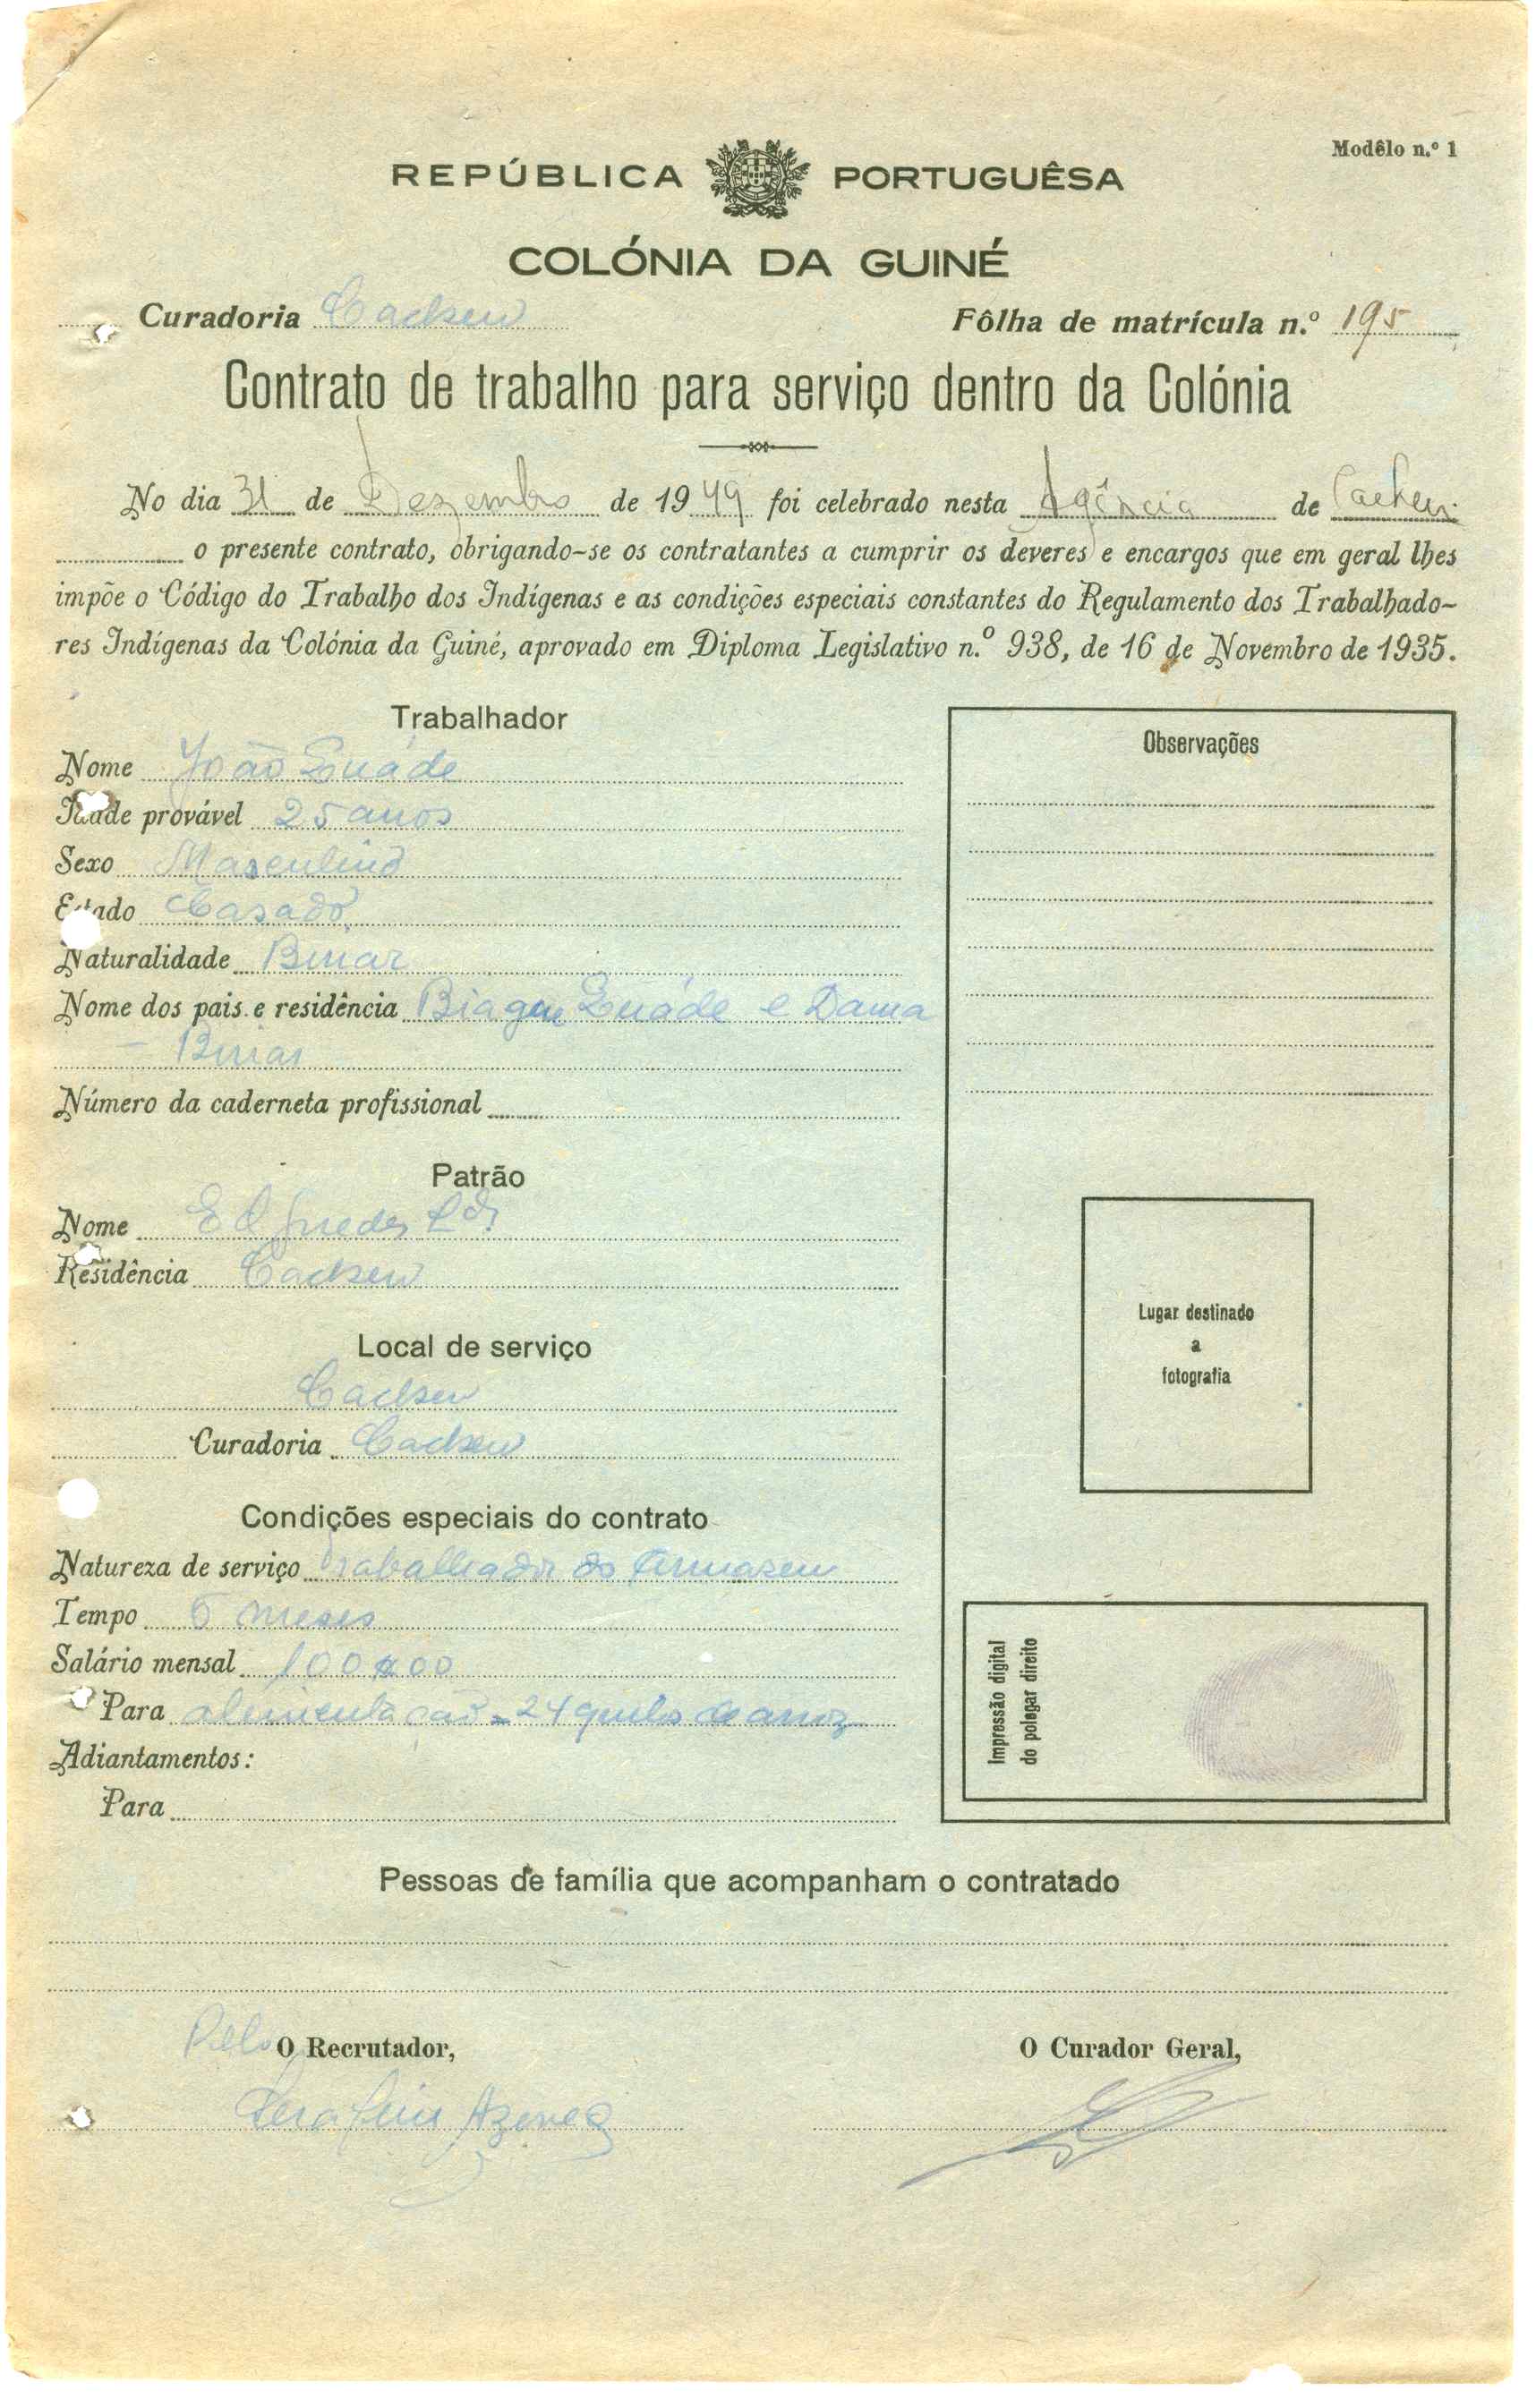 Modêlo n.º 1
REPÚBLICA PORTUGUÊSA
COLÓNIA DA GUINÉ
Curadoria Cacheu Fôlha de matrícula n.º 195
Contrato de trabalho para serviço dentro da Colónia
No dia 31 de Dezembro de 1949 foi celebrado nesta Agência de Cacheu
o presente contrato, obrigando-se os contratantes a cumprir os deveres e encargos que em geral lhes
impõe o Código do Trabalho dos Indígenas e as condições especiais constantes do Regulamento dos Trabalhado-
res Indígenas da Colónia da Guiné, aprovado em Diploma Legislativo n.º 938, de 16 de Novembro de 1935.
Trabalhador
Nome João
Idade provável 25 anos
Sexo Masculino
Estado Casado
Naturalidade Binar
Nome dos pais e residência e Dama
- Binar
Número da caderneta profissional
Patrão
Nome Guedes Lda
Residência Cacheu
Local de serviço
Cacheu
Curadoria Cacheu
Condições especiais do contrato
Natureza de serviço Trabalhador do Armazem
Tempo 6 meses
Salário mensal 100$00
Para alimentação - 24 quilos de arroz
Adiantamentos:
Para
Observações
Lugar destinado
a
fotografia
Impressão digital
do polegar direito
Pessoas de família que acompanham o contratado
Pelo O Recrutador,
O Curador Geral,
Serafim